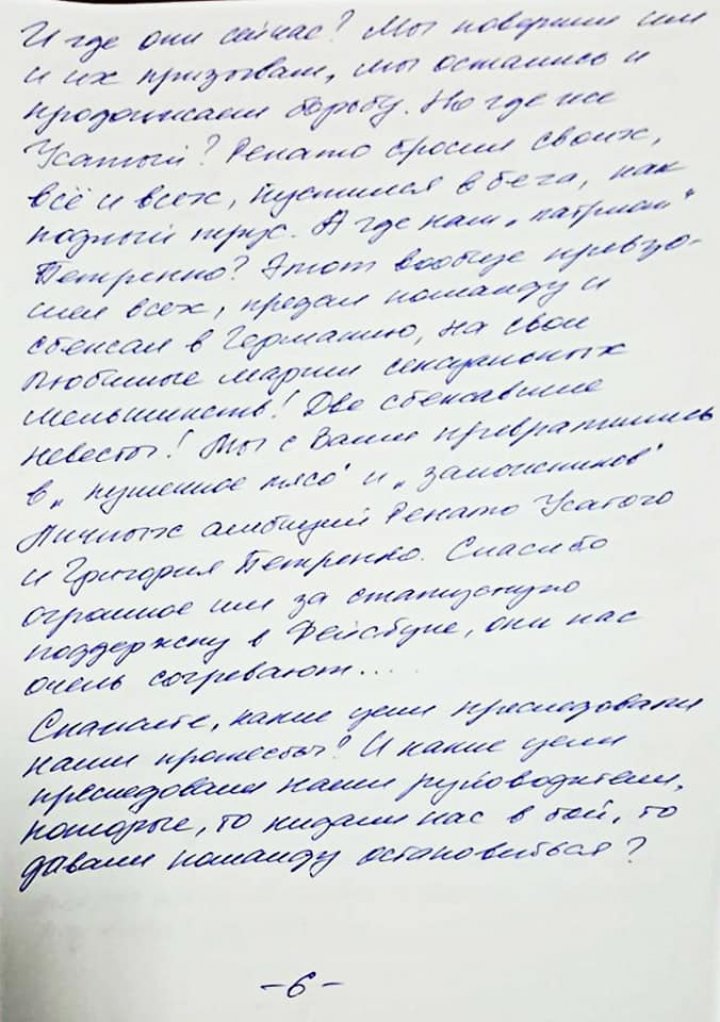 И где они сейчас? Мы поверили им
и их призывам, мы остались и
продолжаем борьбу. Но где же
Усатый? Ренато бросил своих,
всё и всех, пустился в бега, как
подлый трус. А где наш „патриот“
Петренко? Этот вообще превзо-
шел всех, предал команду и
сбежал в Германию, на свои
любимые марши сексуальных
меньшинств! Две сбежавшие
невесты! Мы с Вами превратились
в „пушечное мясо“ и „заложников“
личных амбиций Ренато Усатого
и Григория Петренко. Спасибо
огромное им за статусную
поддержку в Фейсбуке, они нас
очень согревают...
Скажите, какие цели преследовали
наши протесты? И какие цели
преследовали наши руководители,
которые, то кидали нас в бой, то
давали команду остановиться?
-6-